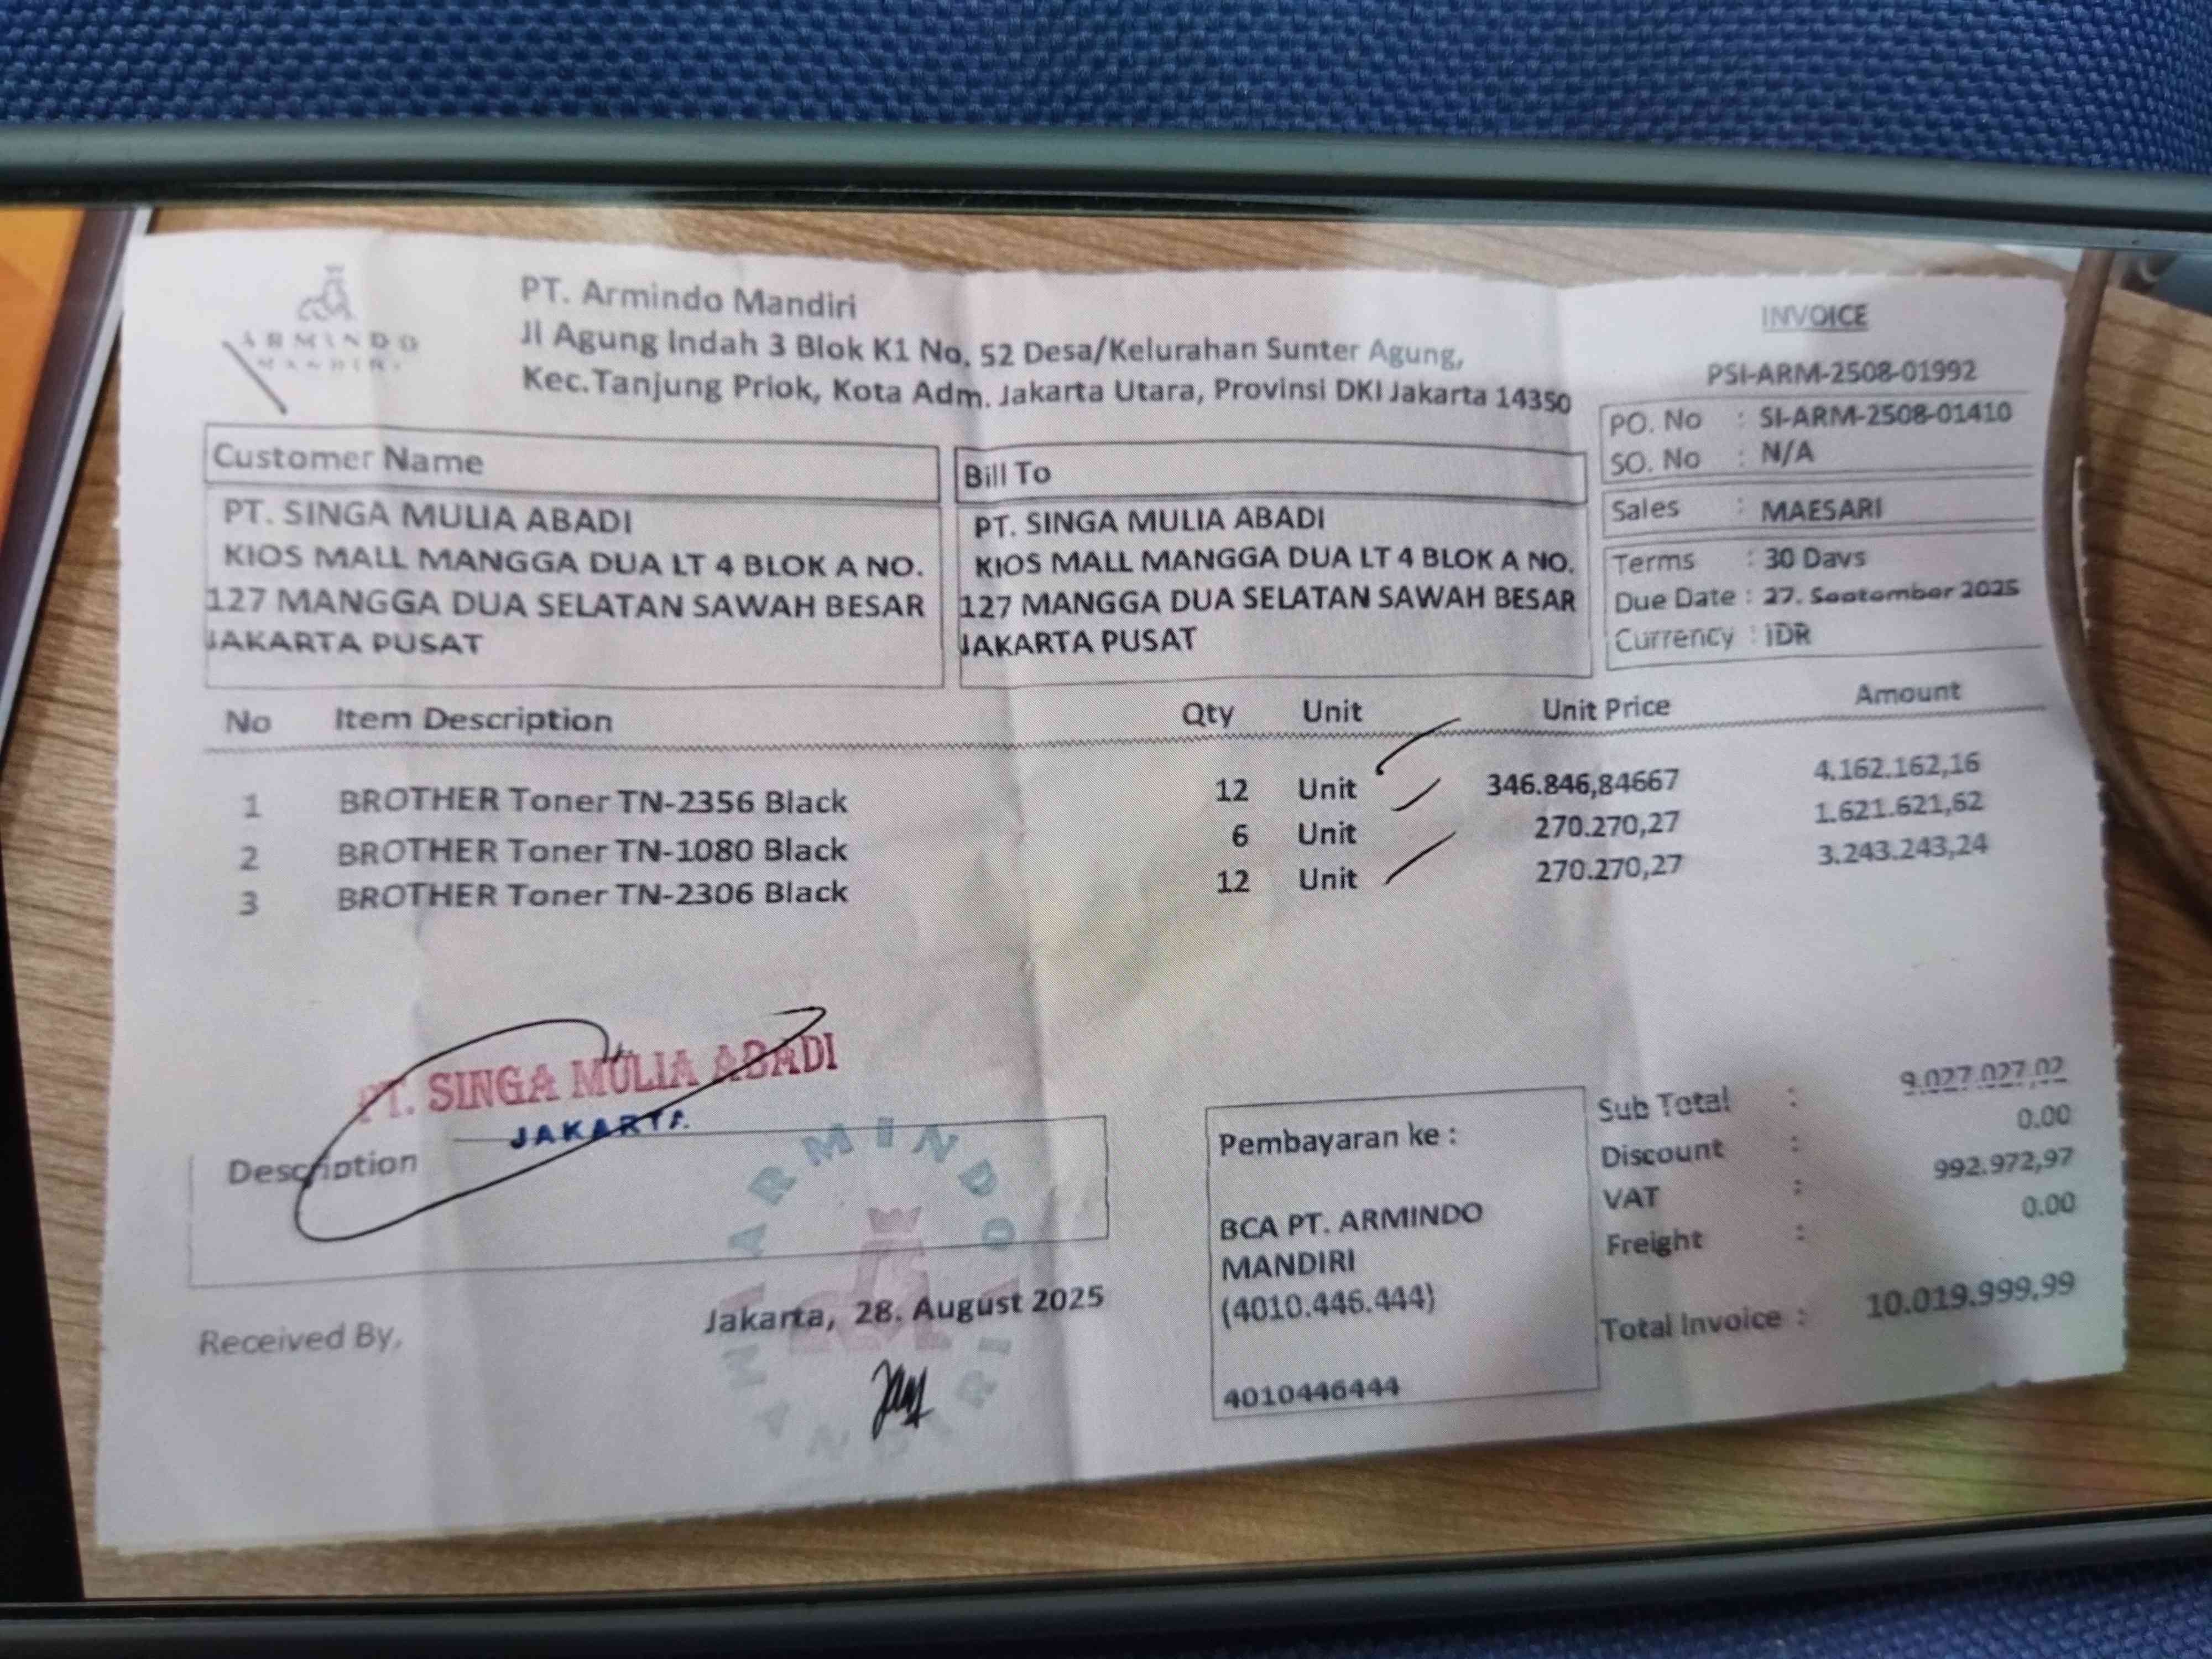 ARMINDO
MANDIRI
PT. Armindo Mandiri
Jl Agung Indah 3 Blok K1 No. 52 Desa/Kelurahan Sunter Agung,
Kec.Tanjung Priok, Kota Adm. Jakarta Utara, Provinsi DKI Jakarta 14350
INVOICE
PSI-ARM-2508-01992
PO. No : SI-ARM-2508-01410
SO. No : N/A
Sales : MAESARI
Terms : 30 Days
Due Date : 27. September 2025
Currency : IDR
Customer Name
PT. SINGA MULIA ABADI
KIOS MALL MANGGA DUA LT 4 BLOK A NO.
127 MANGGA DUA SELATAN SAWAH BESAR
JAKARTA PUSAT
Bill To
PT. SINGA MULIA ABADI
KIOS MALL MANGGA DUA LT 4 BLOK A NO.
127 MANGGA DUA SELATAN SAWAH BESAR
JAKARTA PUSAT
No Item Description Qty Unit Unit Price Amount
1 BROTHER Toner TN-2356 Black 12 Unit 346.846,84667 4.162.162,16
2 BROTHER Toner TN-1080 Black 6 Unit 270.270,27 1.621.621,62
3 BROTHER Toner TN-2306 Black 12 Unit 270.270,27 3.243.243,24
PT. SINGA MULIA ABADI
JAKARTA
Description
ARMINDO
MANDIRI
Received By,
Jakarta, 28. August 2025
Pembayaran ke :
BCA PT. ARMINDO
MANDIRI
(4010.446.444)
4010446444
Sub Total : 9.027.027,02
Discount : 0.00
VAT : 992.972,97
Freight : 0.00
Total Invoice : 10.019.999,99